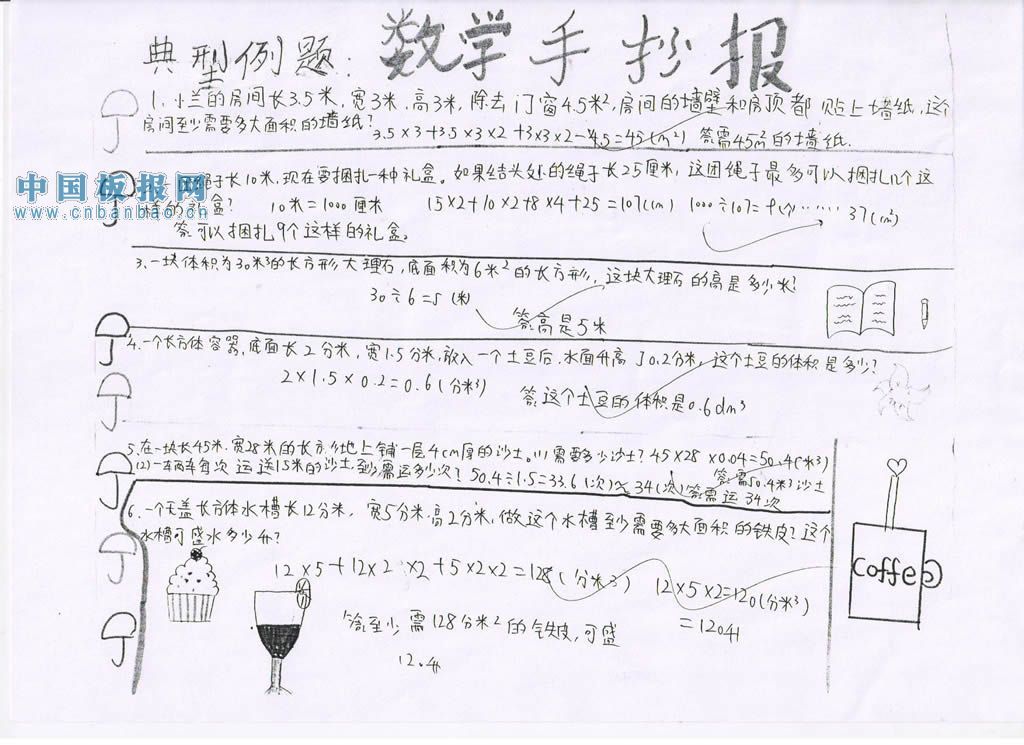 典型例题: 数学手抄报
1、小兰的房间长3.5米,宽3米,高3米,除去门窗4.5米²,房间的墙壁和房顶都贴上墙纸,这个
房间至少需要多大面积的墙纸? 3.5×3+3.5×3×2+3×3×2-4.5=45(m²) 答:需45m²的墙纸.
绳子长10米,现在要捆扎一种礼盒。如果结头处的绳子长25厘米,这团绳子最多可以捆扎几个这
中国板报网
www.cnbanbao.cn
样的礼盒? 10米=1000厘米 15×2+10×2+8×4+25=107(cm) 1000÷107=9(个)······37(cm²)
答:可以捆扎9个这样的礼盒。
3、一块体积为30米³的长方形大理石,底面积为6米²的长方形,这块大理石的高是多少米?
30÷6=5(米)
答:高是5米
4、一个长方体容器,底面长2分米,宽1.5分米,放入一个土豆后,水面升高了0.2分米,这个土豆的体积是多少?
2×1.5×0.2=0.6(分米³)
答:这个土豆的体积是0.6dm³
5、在一块长45米,宽28米的长方形地上铺一层4cm厚的沙土。(1)需要多少沙土? 45×28×0.04=50.4(米³)
答:需50.4米³沙土
(2)一车每次运送1.5米的沙土,至少需运多少次? 50.4÷1.5=33.6(次)≈34(次) 答:需运34次
6、一个无盖长方体水槽长12分米,宽5分米,高2分米,做这个水槽至少需要多大面积的铁皮?这个
水槽可盛水多少升?
12×5+12×2×2+5×2×2=128(分米³) 12×5×2=120(分米³)
=120升
答:至少需128分米²的铁皮,可盛
120升
Coffee